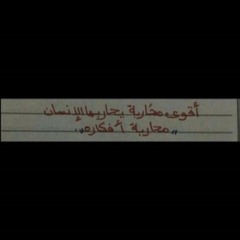 أقوى محاربة يحاربها الإنسان
"محاربة أفكاره".